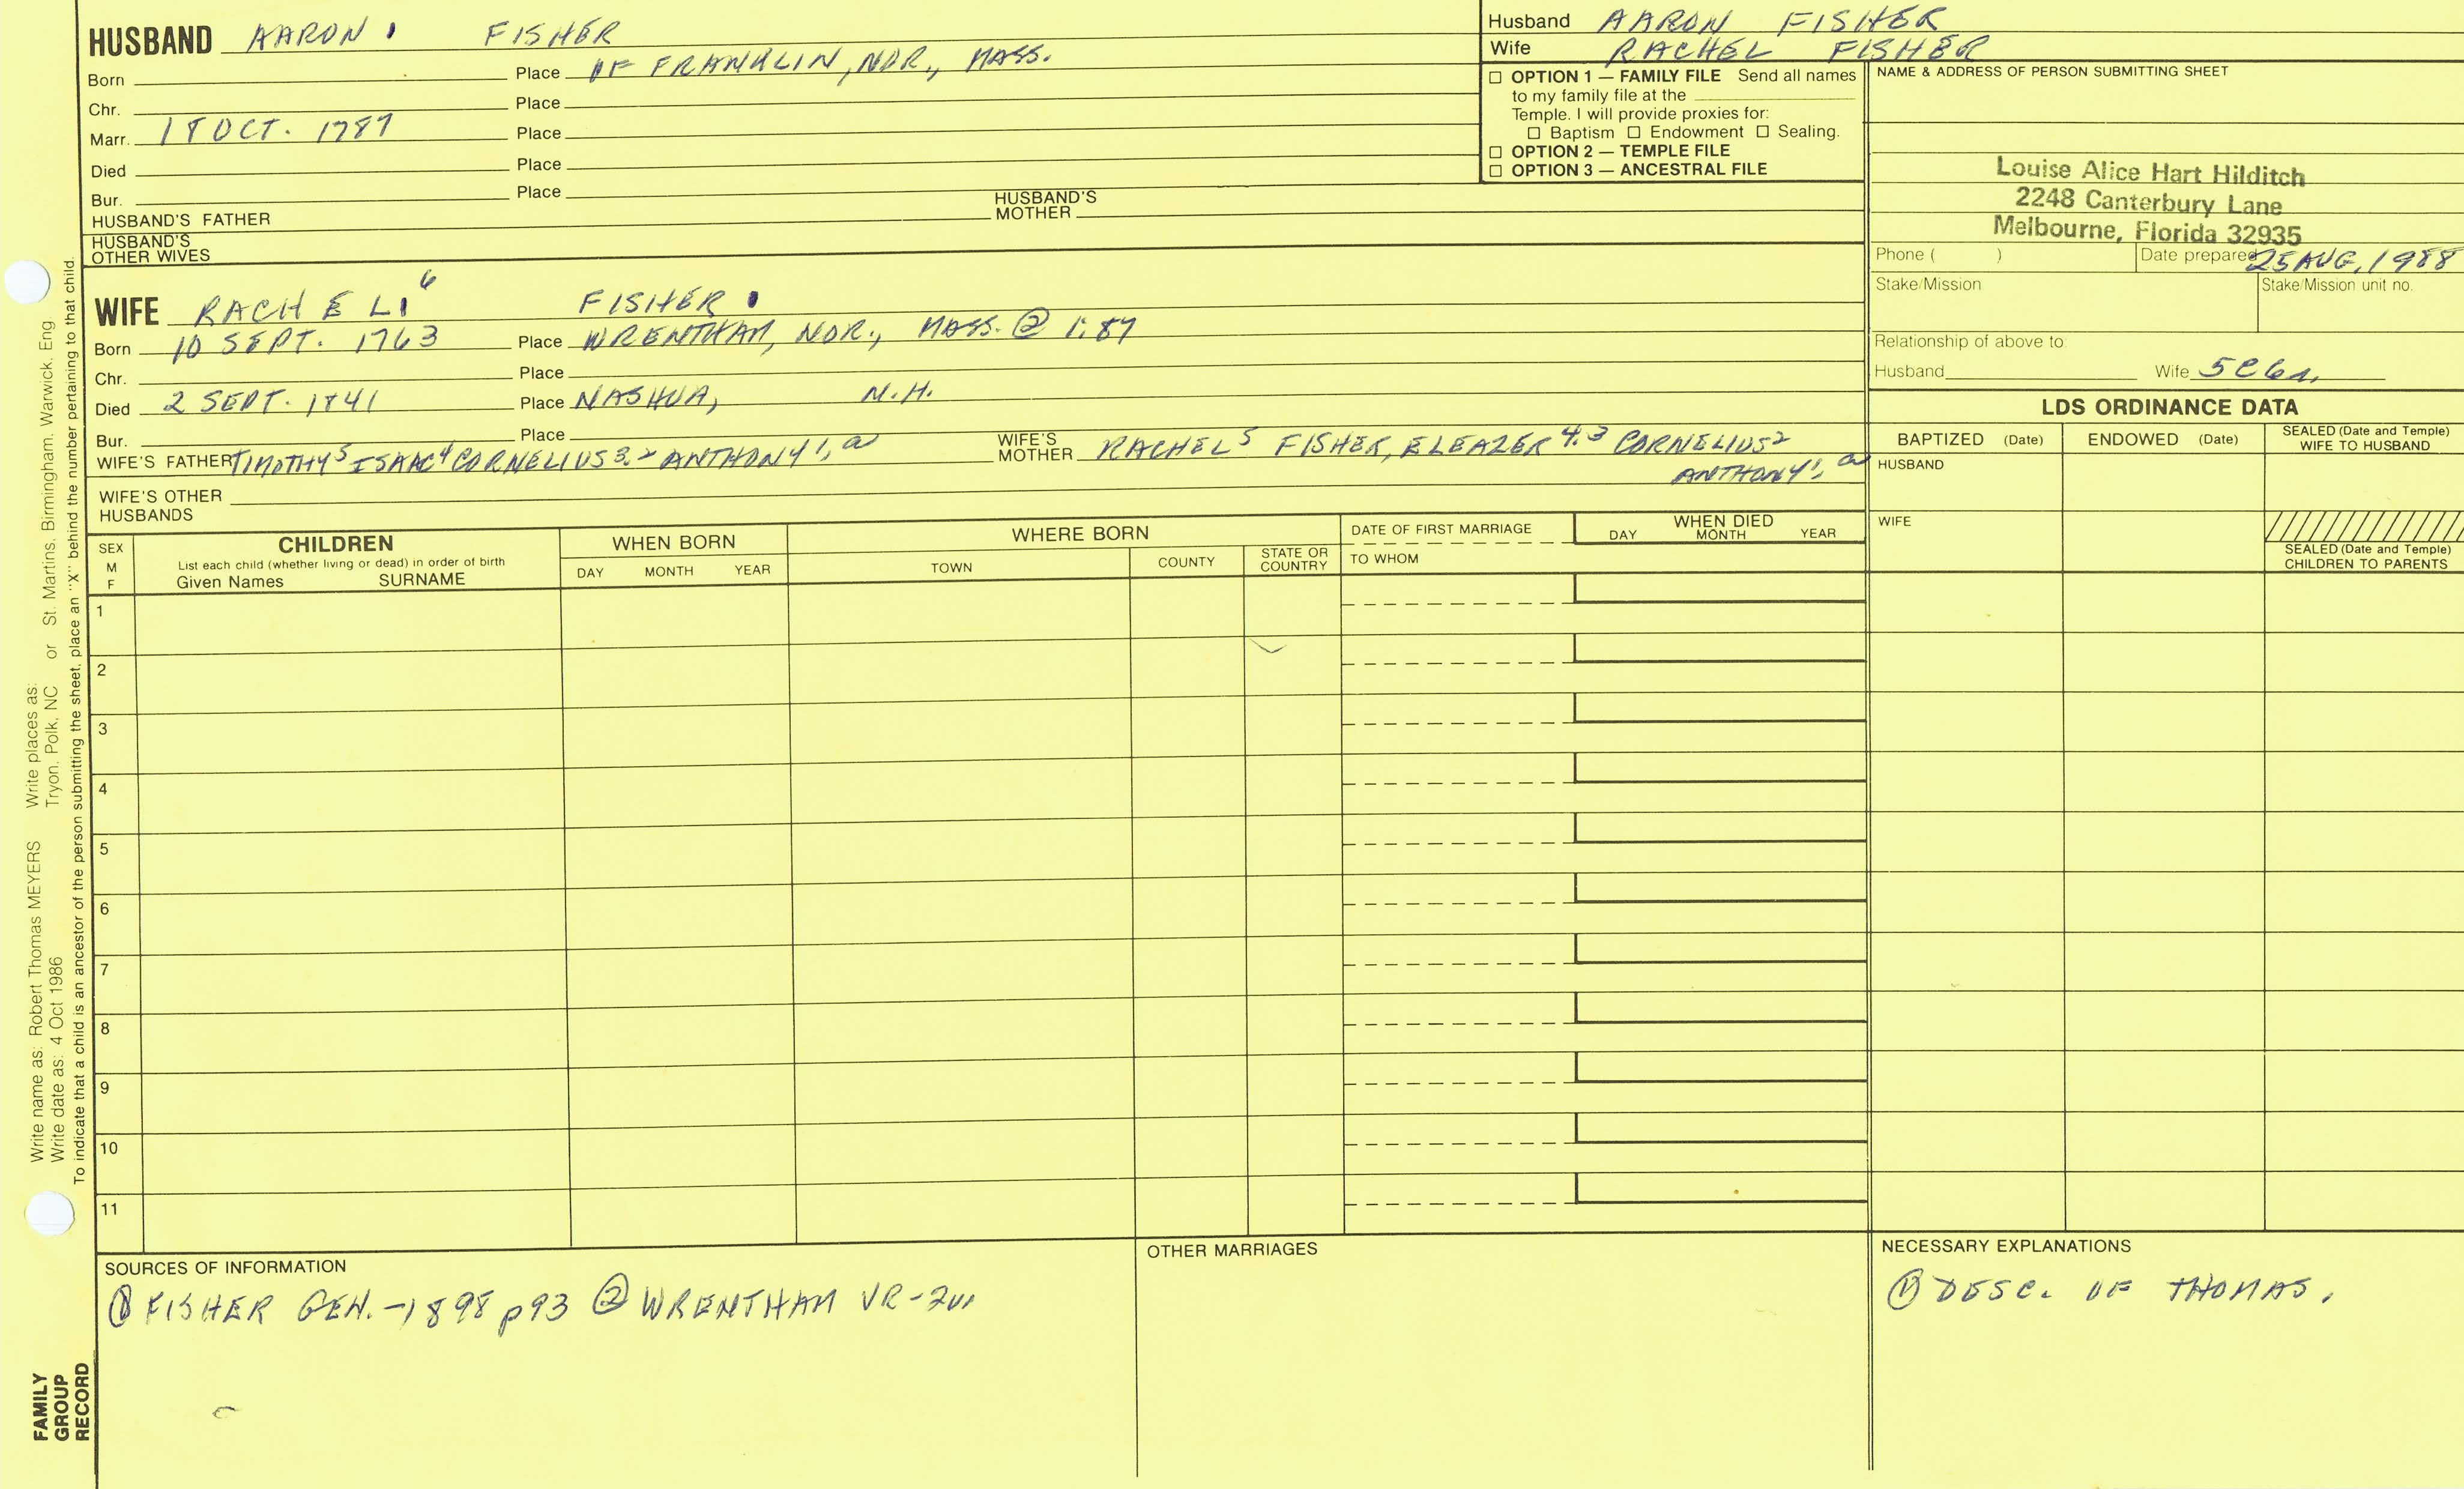 HUSBAND AARON FISHER
Born Place OF FRANKLIN, NOR., MASS.
Chr. Place
Marr. 18 OCT. 1787 Place
Died Place
Bur. Place
HUSBAND'S FATHER HUSBAND'S MOTHER
HUSBAND'S
OTHER WIVES
Husband AARON FISHER
Wife RACHEL FISHER
☐ OPTION 1 — FAMILY FILE Send all names
to my family file at the
Temple. I will provide proxies for:
☐ Baptism ☐ Endowment ☐ Sealing.
☐ OPTION 2 — TEMPLE FILE
☐ OPTION 3 — ANCESTRAL FILE
NAME & ADDRESS OF PERSON SUBMITTING SHEET
Louise Alice Hart Hilditch
2248 Canterbury Lane
Melbourne, Florida 32935
Phone ( ) Date prepared 25 AUG, 1988
Stake/Mission Stake/Mission unit no.
Relationship of above to
Husband Wife
WIFE RACHEL 6 FISHER
Born 10 SEPT. 1763 Place WRENTHAM, NOR., MASS. @ 1:87
Chr. Place
Died 2 SEPT. 1841 Place NASHUA, N.H.
Bur. Place
WIFE'S FATHER TIMOTHY5 ISAAC4 CORNELIUS3,2 ANTHONY1, a
WIFE'S MOTHER RACHEL5 FISHER, ELEAZER4,3 CORNELIUS2
ANTHONY1, a
WIFE'S OTHER
HUSBANDS
LDS ORDINANCE DATA
BAPTIZED (Date) ENDOWED (Date) SEALED (Date and Temple)
WIFE TO HUSBAND
HUSBAND
WIFE
SEALED (Date and Temple)
CHILDREN TO PARENTS
SEX
M
F
CHILDREN
List each child (whether living or dead) in order of birth
Given Names SURNAME
WHEN BORN
DAY MONTH YEAR
WHERE BORN
TOWN COUNTY STATE OR COUNTRY
DATE OF FIRST MARRIAGE
TO WHOM
WHEN DIED
DAY MONTH YEAR
1
2
3
4
5
6
7
8
9
10
11
SOURCES OF INFORMATION
① FISHER GEN.-1898 p93 ② WRENTHAM VR-
OTHER MARRIAGES
NECESSARY EXPLANATIONS
① DESC. OF THOMAS.
Write name as: Robert Thomas MEYERS Write places as:
Write date as: 4 Oct 1986 Tryon, Polk, NC or St. Martins, Birmingham, Warwick, Eng
To indicate that a child is an ancestor of the person submitting the sheet, place an "X" behind the number pertaining to that child.
FAMILY
GROUP
RECORD